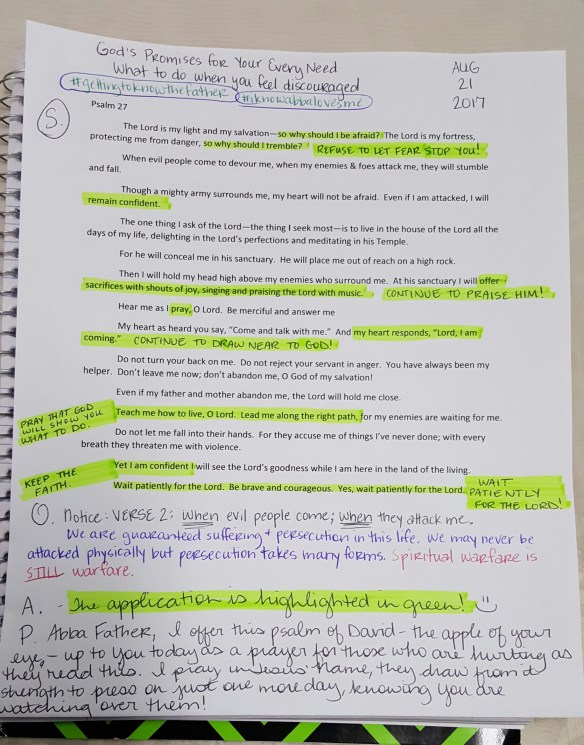 God's Promises for Your Every Need
What to do when you feel discouraged
#gettingtoknowtheFather #iknowabbalovesme
AUG
21
2017
S.
Psalm 27
The Lord is my light and my salvation—so why should I be afraid? The Lord is my fortress,
protecting me from danger, so why should I tremble? REFUSE TO LET FEAR STOP YOU!
When evil people come to devour me, when my enemies & foes attack me, they will stumble
and fall.
Though a mighty army surrounds me, my heart will not be afraid. Even if I am attacked, I will
remain confident.
The one thing I ask of the Lord—the thing I seek most—is to live in the house of the Lord all the
days of my life, delighting in the Lord's perfections and meditating in his Temple.
For he will conceal me in his sanctuary. He will place me out of reach on a high rock.
Then I will hold my head high above my enemies who surround me. At his sanctuary I will offer
sacrifices with shouts of joy, singing and praising the Lord with music. CONTINUE TO PRAISE HIM!
Hear me as I pray, O Lord. Be merciful and answer me
My heart as heard you say, "Come and talk with me." And my heart responds, "Lord, I am
coming." CONTINUE TO DRAW NEAR TO GOD!
Do not turn your back on me. Do not reject your servant in anger. You have always been my
helper. Don't leave me now; don't abandon me, O God of my salvation!
Even if my father and mother abandon me, the Lord will hold me close.
PRAY THAT GOD
WILL SHOW YOU
WHAT TO DO.
Teach me how to live, O Lord. Lead me along the right path, for my enemies are waiting for me.
Do not let me fall into their hands. For they accuse me of things I've never done; with every
breath they threaten me with violence.
KEEP THE
FAITH.
Yet I am confident I will see the Lord's goodness while I am here in the land of the living.
Wait patiently for the Lord. Be brave and courageous. Yes, wait patiently for the Lord.
WAIT
PATIENTLY
FOR THE LORD!
O. Notice: VERSE 2: When evil people come; when they attack me.
We are guaranteed suffering + persecution in this life. We may never be
attacked physically but persecution takes many forms. Spiritual warfare is
STILL warfare.
A. - The application is highlighted in green!
P. Abba Father, I offer this psalm of David - the apple of your
eye - up to You today as a prayer for those who are hurting as
they read this. I pray in Jesus' name, they draw from it
strength to press on just one more day, knowing you are
watching over them!